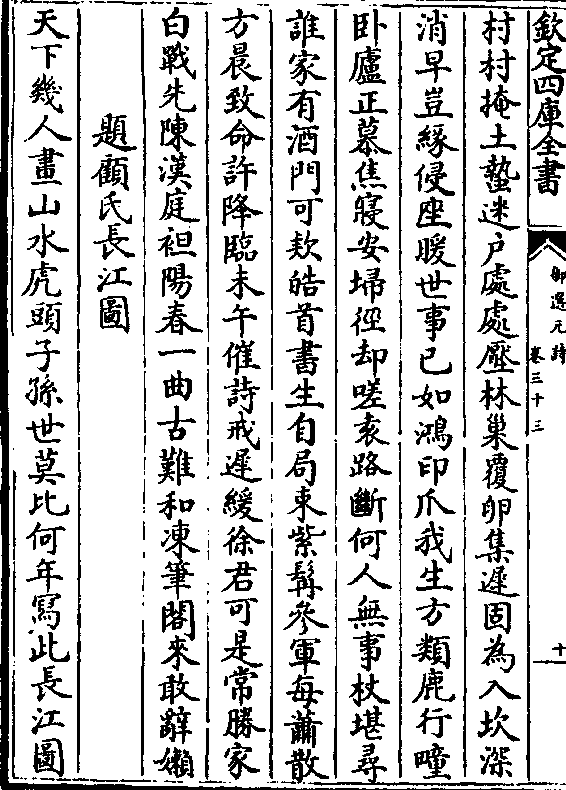 欽定四庫全書
御選元詩
卷三十三
十
村村掩土蟄迷户處處壓林巢覆卵集遲固為入坎深
消早豈緣侵座暖世事已如鴻印爪我生方類鹿行畽
卧廬正慕焦寢安埽徑却嗟袁路斷何人無事杖堪尋
誰家有酒門可欵皓首書生自局束紫髯參軍每蕭散
方晨致命許降臨未午催詩戒遲緩徐君可是常勝家
白戰先陳漢庭袒陽春一曲古難和凍筆閣來敢辭嬾
題顧氏長江圖
天下幾人畫山水虎頭子孫世莫比何年寫此長江圖